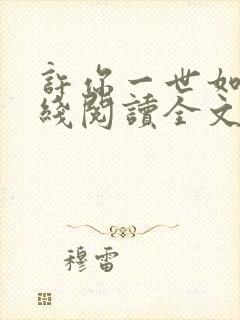 許你一世如
綫閱讀全文
穆雷